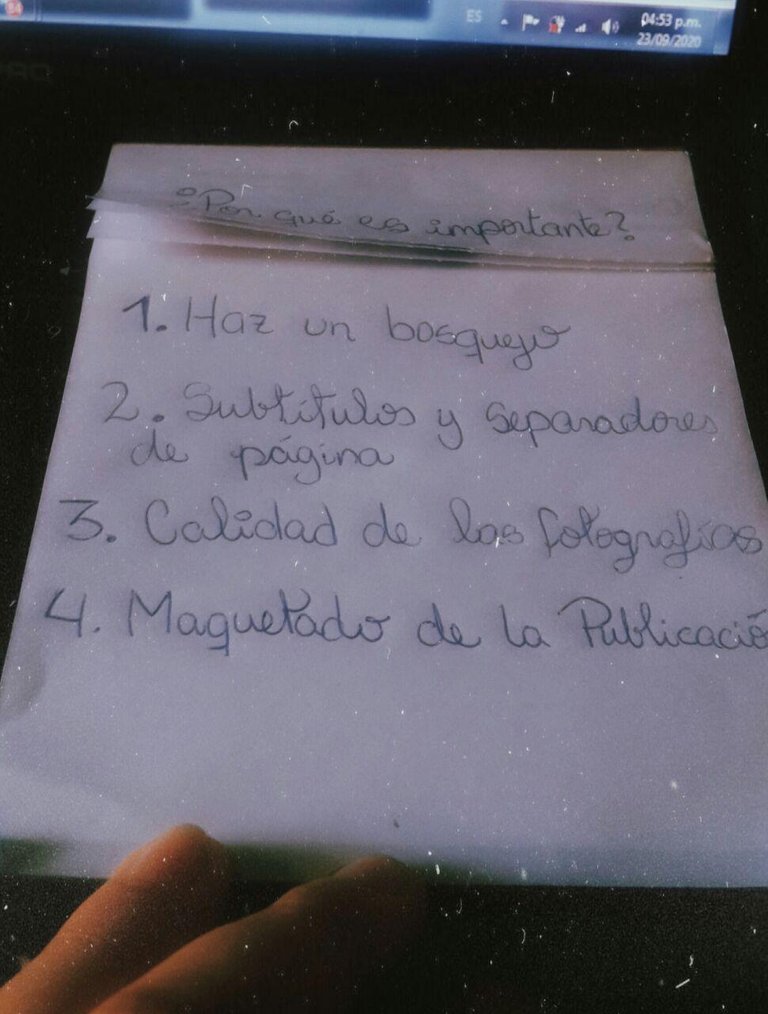 ES
04:53 p.m.
23/09/2020
¿Por qué es importante?
1. Haz un bosquejo
2. Subtítulos y separadores
de página
3. Calidad de las fotografías
4. Maquetado de la Publicació